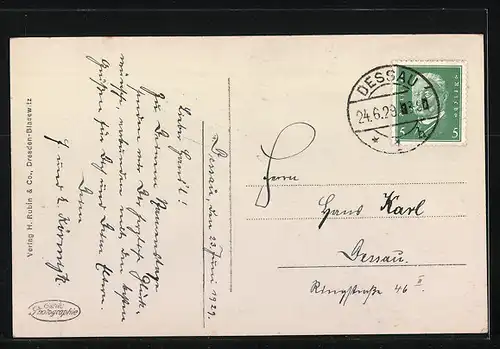 Dessau, den 23. Juni 1929.
Lieber Hans!
Zu Deinem Namenstage
senden wir Dir herzliche Glück-
wünsche, verbunden mit den besten
Grüßen für Dich und Deine Eltern.
Dein
Verlag H. Rubin & Co., Dresden-Blasewitz
Echte
Photographie
DESSAU
24.6.29
5
5
Herrn
Hans Karl
Dessau.
Ringstraße 46